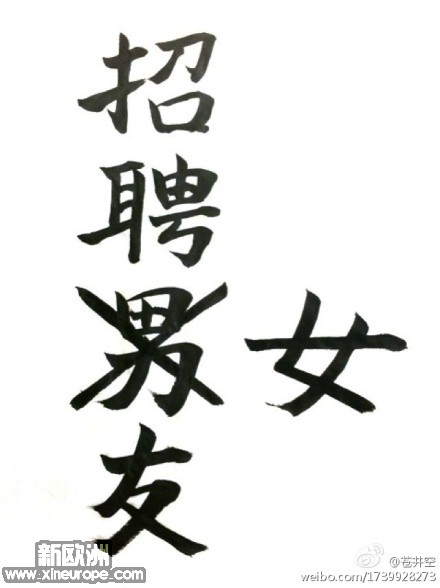 招聘男友
女
新欧洲
www.xineurope.com
@苍井空
weibo.com/1739928273